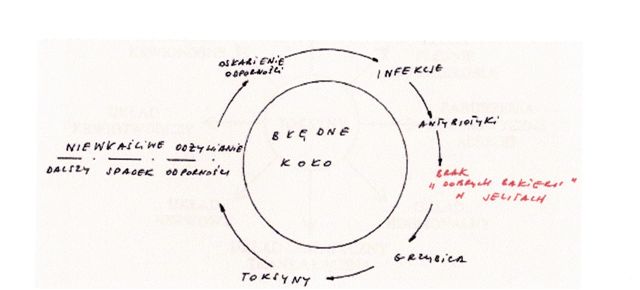 OSŁABIENIE
ODPORNOŚCI
INFEKCJE
ANTYBIOTYKI
BRAK
„DOBRYCH BAKTERII”
W JELITACH
GRZYBICA
TOKSYNY
NIEWŁAŚCIWE ODŻYWIANIE
DALSZY SPADEK ODPORNOŚCI
BŁĘDNE
KOŁO